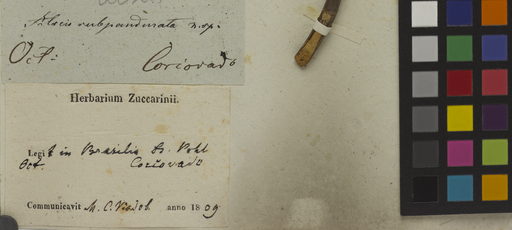 subpandurata n. sp.
Oct. Corcovado
Herbarium Zuccarinii.
Legit in Brasilia Dr. Pohl
Oct. Corcovado
Communicavit M. C. Vindob. anno 18 39